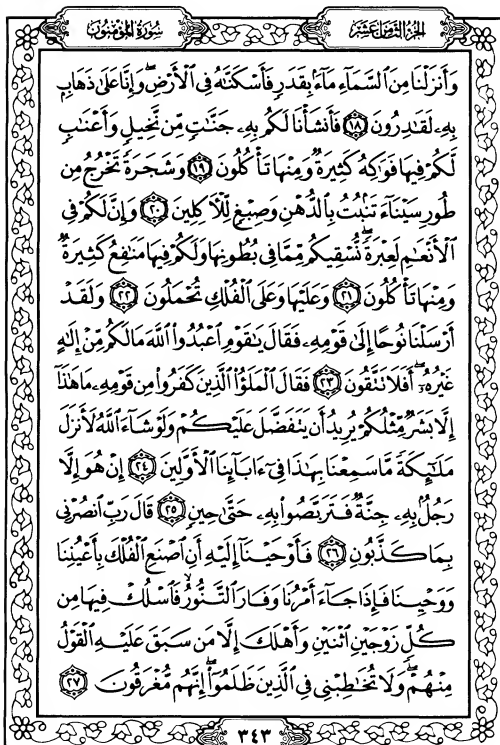 الجزء الثامن عشر
سورة المؤمنون
وَأَنزَلْنَا مِنَ ٱلسَّمَآءِ مَآءًۢ بِقَدَرٍ فَأَسْكَنَّٰهُ فِى ٱلْأَرْضِ وَإِنَّا عَلَىٰ ذَهَابٍۭ
بِهِۦ لَقَٰدِرُونَ ١٨ فَأَنشَأْنَا لَكُم بِهِۦ جَنَّٰتٍ مِّن نَّخِيلٍ وَأَعْنَٰبٍ
لَّكُمْ فِيهَا فَوَٰكِهُ كَثِيرَةٌ وَمِنْهَا تَأْكُلُونَ ١٩ وَشَجَرَةً تَخْرُجُ مِن
طُورِ سَيْنَآءَ تَنۢبُتُ بِٱلدُّهْنِ وَصِبْغٍ لِّلْءَاكِلِينَ ٢٠ وَإِنَّ لَكُمْ فِى
ٱلْأَنْعَٰمِ لَعِبْرَةً نُّسْقِيكُم مِّمَّا فِى بُطُونِهَا وَلَكُمْ فِيهَا مَنَٰفِعُ كَثِيرَةٌ
وَمِنْهَا تَأْكُلُونَ ٢١ وَعَلَيْهَا وَعَلَى ٱلْفُلْكِ تُحْمَلُونَ ٢٢ وَلَقَدْ
أَرْسَلْنَا نُوحًا إِلَىٰ قَوْمِهِۦ فَقَالَ يَٰقَوْمِ ٱعْبُدُوا۟ ٱللَّهَ مَا لَكُم مِّنْ إِلَٰهٍ
غَيْرُهُۥٓ أَفَلَا تَتَّقُونَ ٢٣ فَقَالَ ٱلْمَلَؤُا۟ ٱلَّذِينَ كَفَرُوا۟ مِن قَوْمِهِۦ مَا هَٰذَآ
إِلَّا بَشَرٌ مِّثْلُكُمْ يُرِيدُ أَن يَتَفَضَّلَ عَلَيْكُمْ وَلَوْ شَآءَ ٱللَّهُ لَأَنزَلَ
مَلَٰٓئِكَةً مَّا سَمِعْنَا بِهَٰذَا فِىٓ ءَابَآئِنَا ٱلْأَوَّلِينَ ٢٤ إِنْ هُوَ إِلَّا
رَجُلٌۢ بِهِۦ جِنَّةٌ فَتَرَبَّصُوا۟ بِهِۦ حَتَّىٰ حِينٍ ٢٥ قَالَ رَبِّ ٱنصُرْنِى
بِمَا كَذَّبُونِ ٢٦ فَأَوْحَيْنَآ إِلَيْهِ أَنِ ٱصْنَعِ ٱلْفُلْكَ بِأَعْيُنِنَا
وَوَحْيِنَا فَإِذَا جَآءَ أَمْرُنَا وَفَارَ ٱلتَّنُّورُ فَٱسْلُكْ فِيهَا مِن
كُلٍّ زَوْجَيْنِ ٱثْنَيْنِ وَأَهْلَكَ إِلَّا مَن سَبَقَ عَلَيْهِ ٱلْقَوْلُ
مِنْهُمْ وَلَا تُخَٰطِبْنِى فِى ٱلَّذِينَ ظَلَمُوٓا۟ إِنَّهُم مُّغْرَقُونَ ٢٧
٣٤٣